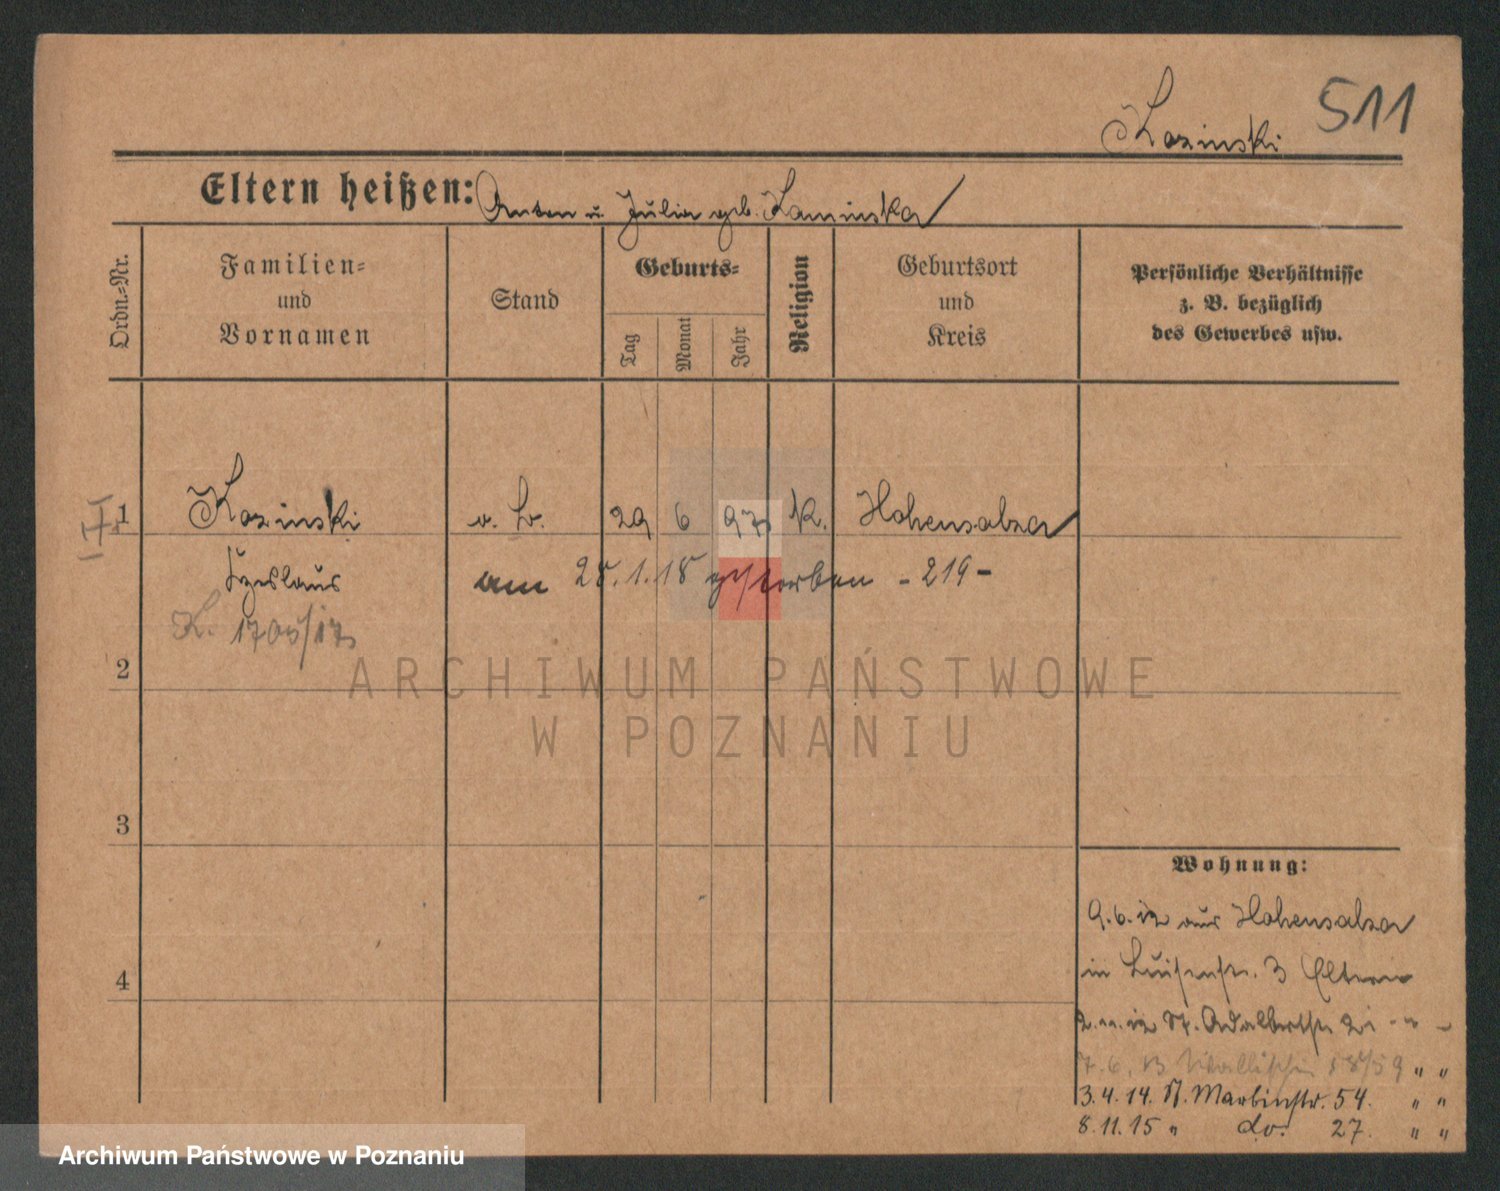 511
Kozinski
Eltern heißen: Anton u. Julia geb. Kaminska
Ordn.=Nr.
Familien=
und
Vornamen
Stand
Geburts=
Tag
Monat
Jahr
Religion
Geburtsort
und
Kreis
Persönliche Verhältnisse
z. B. bezüglich
des Gewerbes usw.
1 Kozinski 29 6 97 K. Hohensalza
am 28.1.18 gestorben - 219 -
K. 1705/17
2
3
4
Wohnung:
9.6.12 aus Hohensalza
in Luisenstr. 3 Eltern
2.11.12 St. Adalbertstr. 21 " "
7.6.13 Wallischei 58/59 " "
3.4.14. St. Martinstr. 54. " "
8.11.15 " do. 27. " "
ARCHIWUM PAŃSTWOWE
W POZNANIU
Archiwum Państwowe w Poznaniu